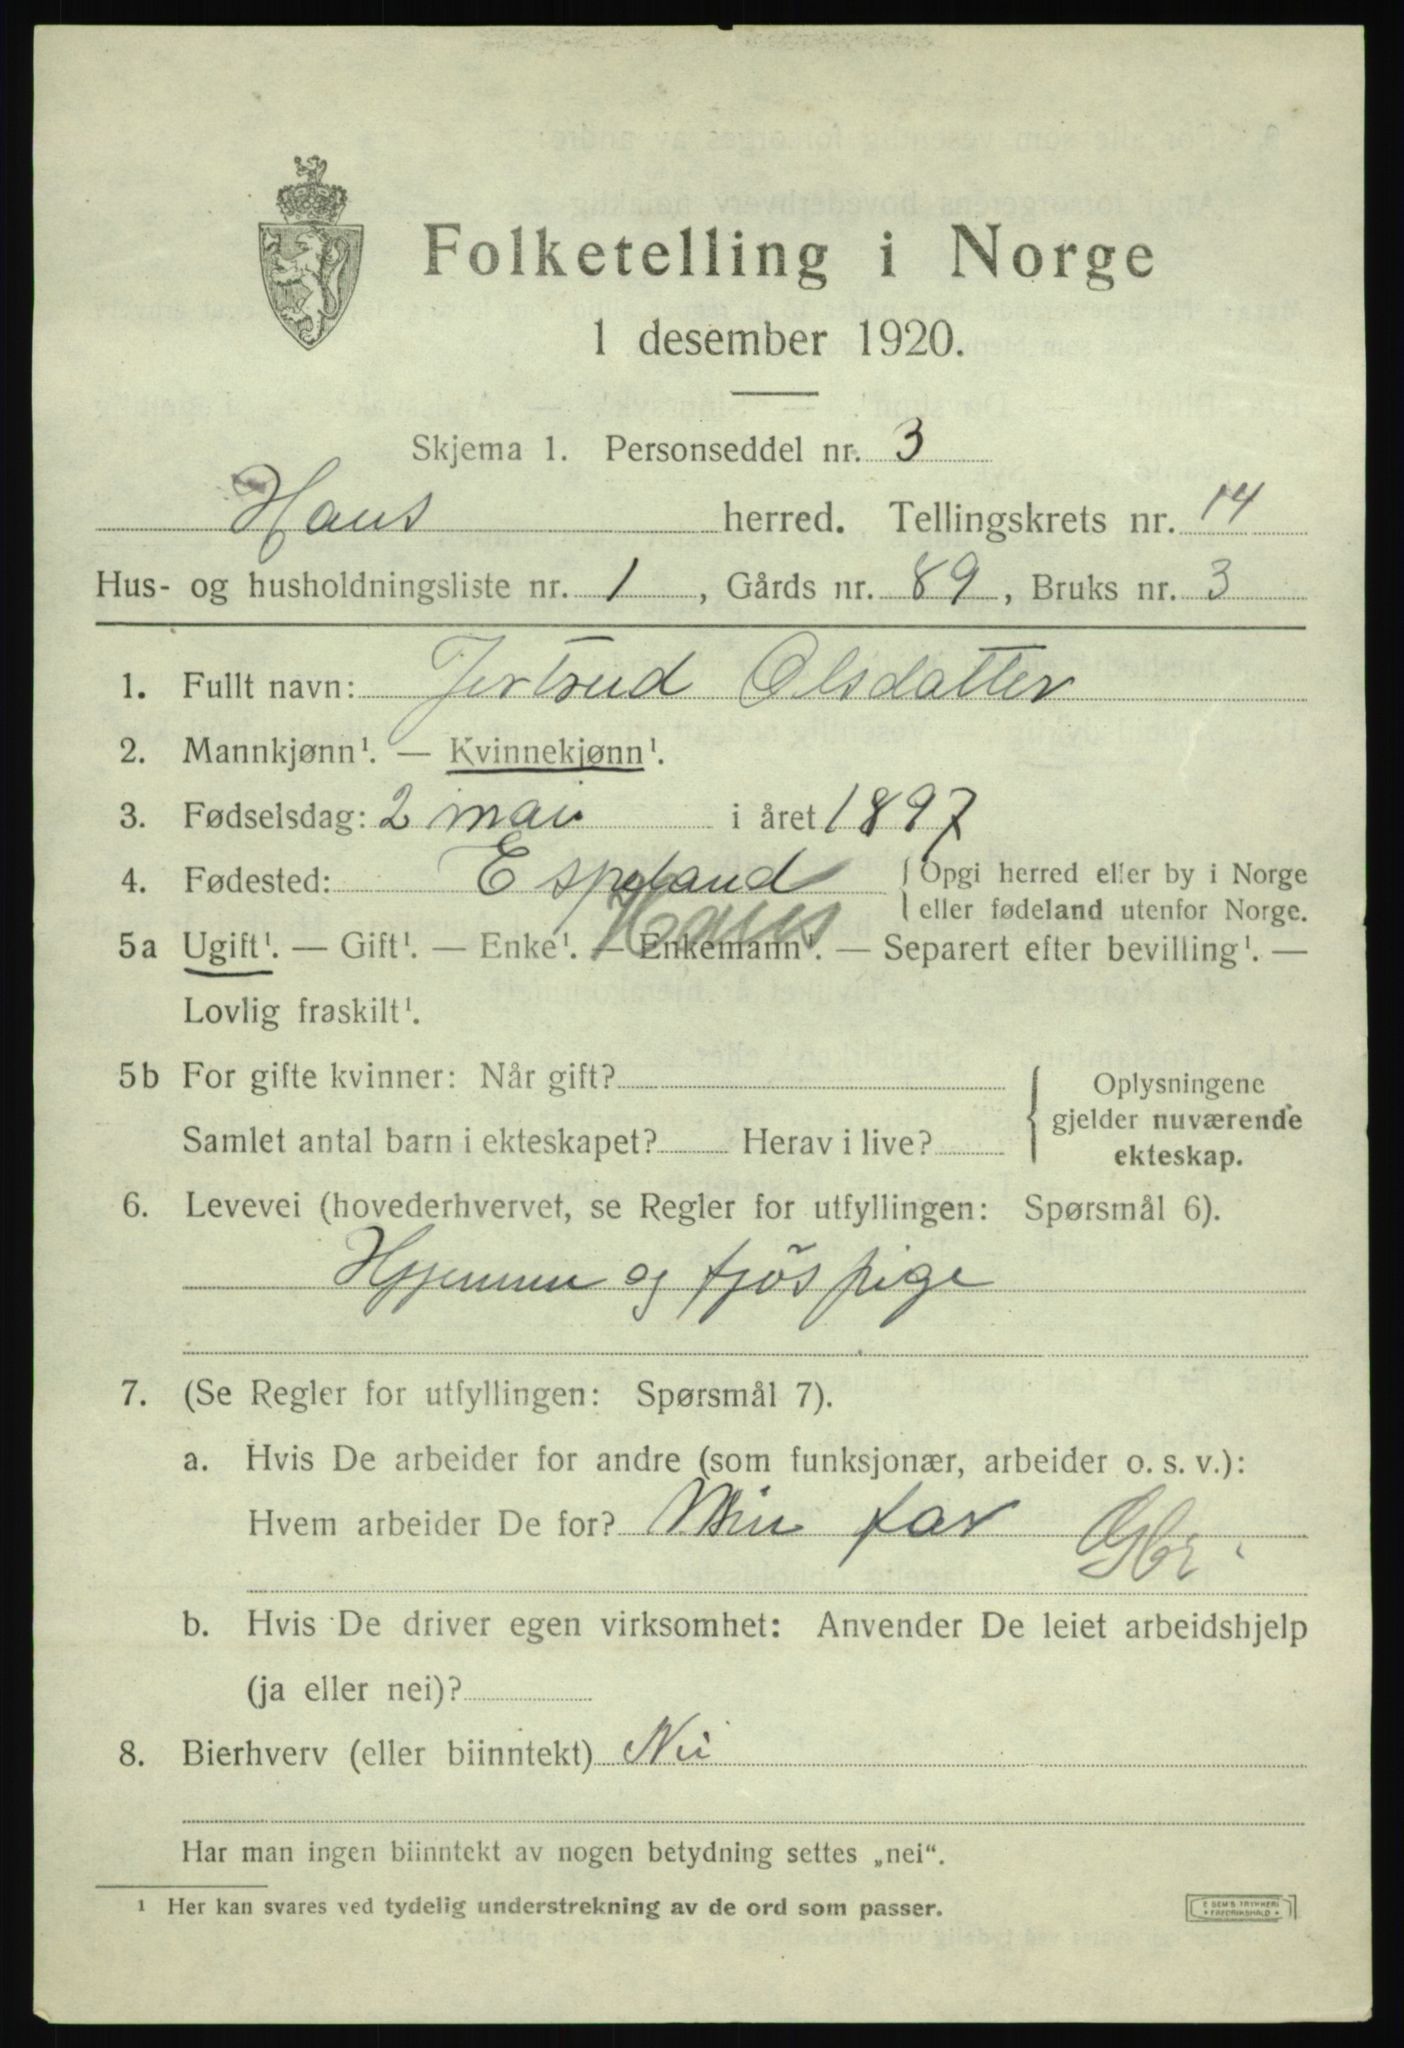 Folketelling i Norge
1 desember 1920.
Skjema 1. Personseddel nr. 3
Haus herred. Tellingskrets nr. 14
Hus- og husholdningsliste nr. 1, Gårds nr. 89, Bruks nr. 3
1. Fullt navn: Jertrud Olsdatter
2. Mannkjønn¹. — Kvinnekjønn¹.
3. Fødselsdag: 2 mai i året 1897
4. Fødested: Espeland { Opgi herred eller by i Norge
eller fødeland utenfor Norge.
Haus
5a Ugift¹. — Gift¹. — Enke¹. — Enkemann¹. — Separert efter bevilling¹. —
Lovlig fraskilt¹.
5b For gifte kvinner: Når gift? { Oplysningene
gjelder nuværende
Samlet antal barn i ekteskapet? Herav i live?
ekteskap.
6. Levevei (hovederhvervet, se Regler for utfyllingen: Spørsmål 6).
Hjemme og fjøs pige
7. (Se Regler for utfyllingen: Spørsmål 7).
a. Hvis De arbeider for andre (som funksjonær, arbeider o. s. v.):
Hvem arbeider De for? Min far
b. Hvis De driver egen virksomhet: Anvender De leiet arbeidshjelp
(ja eller nei)?
8. Bierhverv (eller biinntekt) Nei
Har man ingen biinntekt av nogen betydning settes „nei“.
¹ Her kan svares ved tydelig understrekning av de ord som passer.
E SEM'S TRYKKERI
FREDRIKSHALD